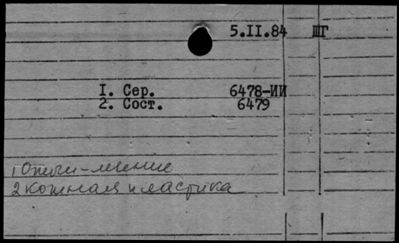 5.II.84 ШГ
I. Сер. 6478-ИИ
2. Сост. 6479
1 Ожоги - лечение
2 кожная пластика